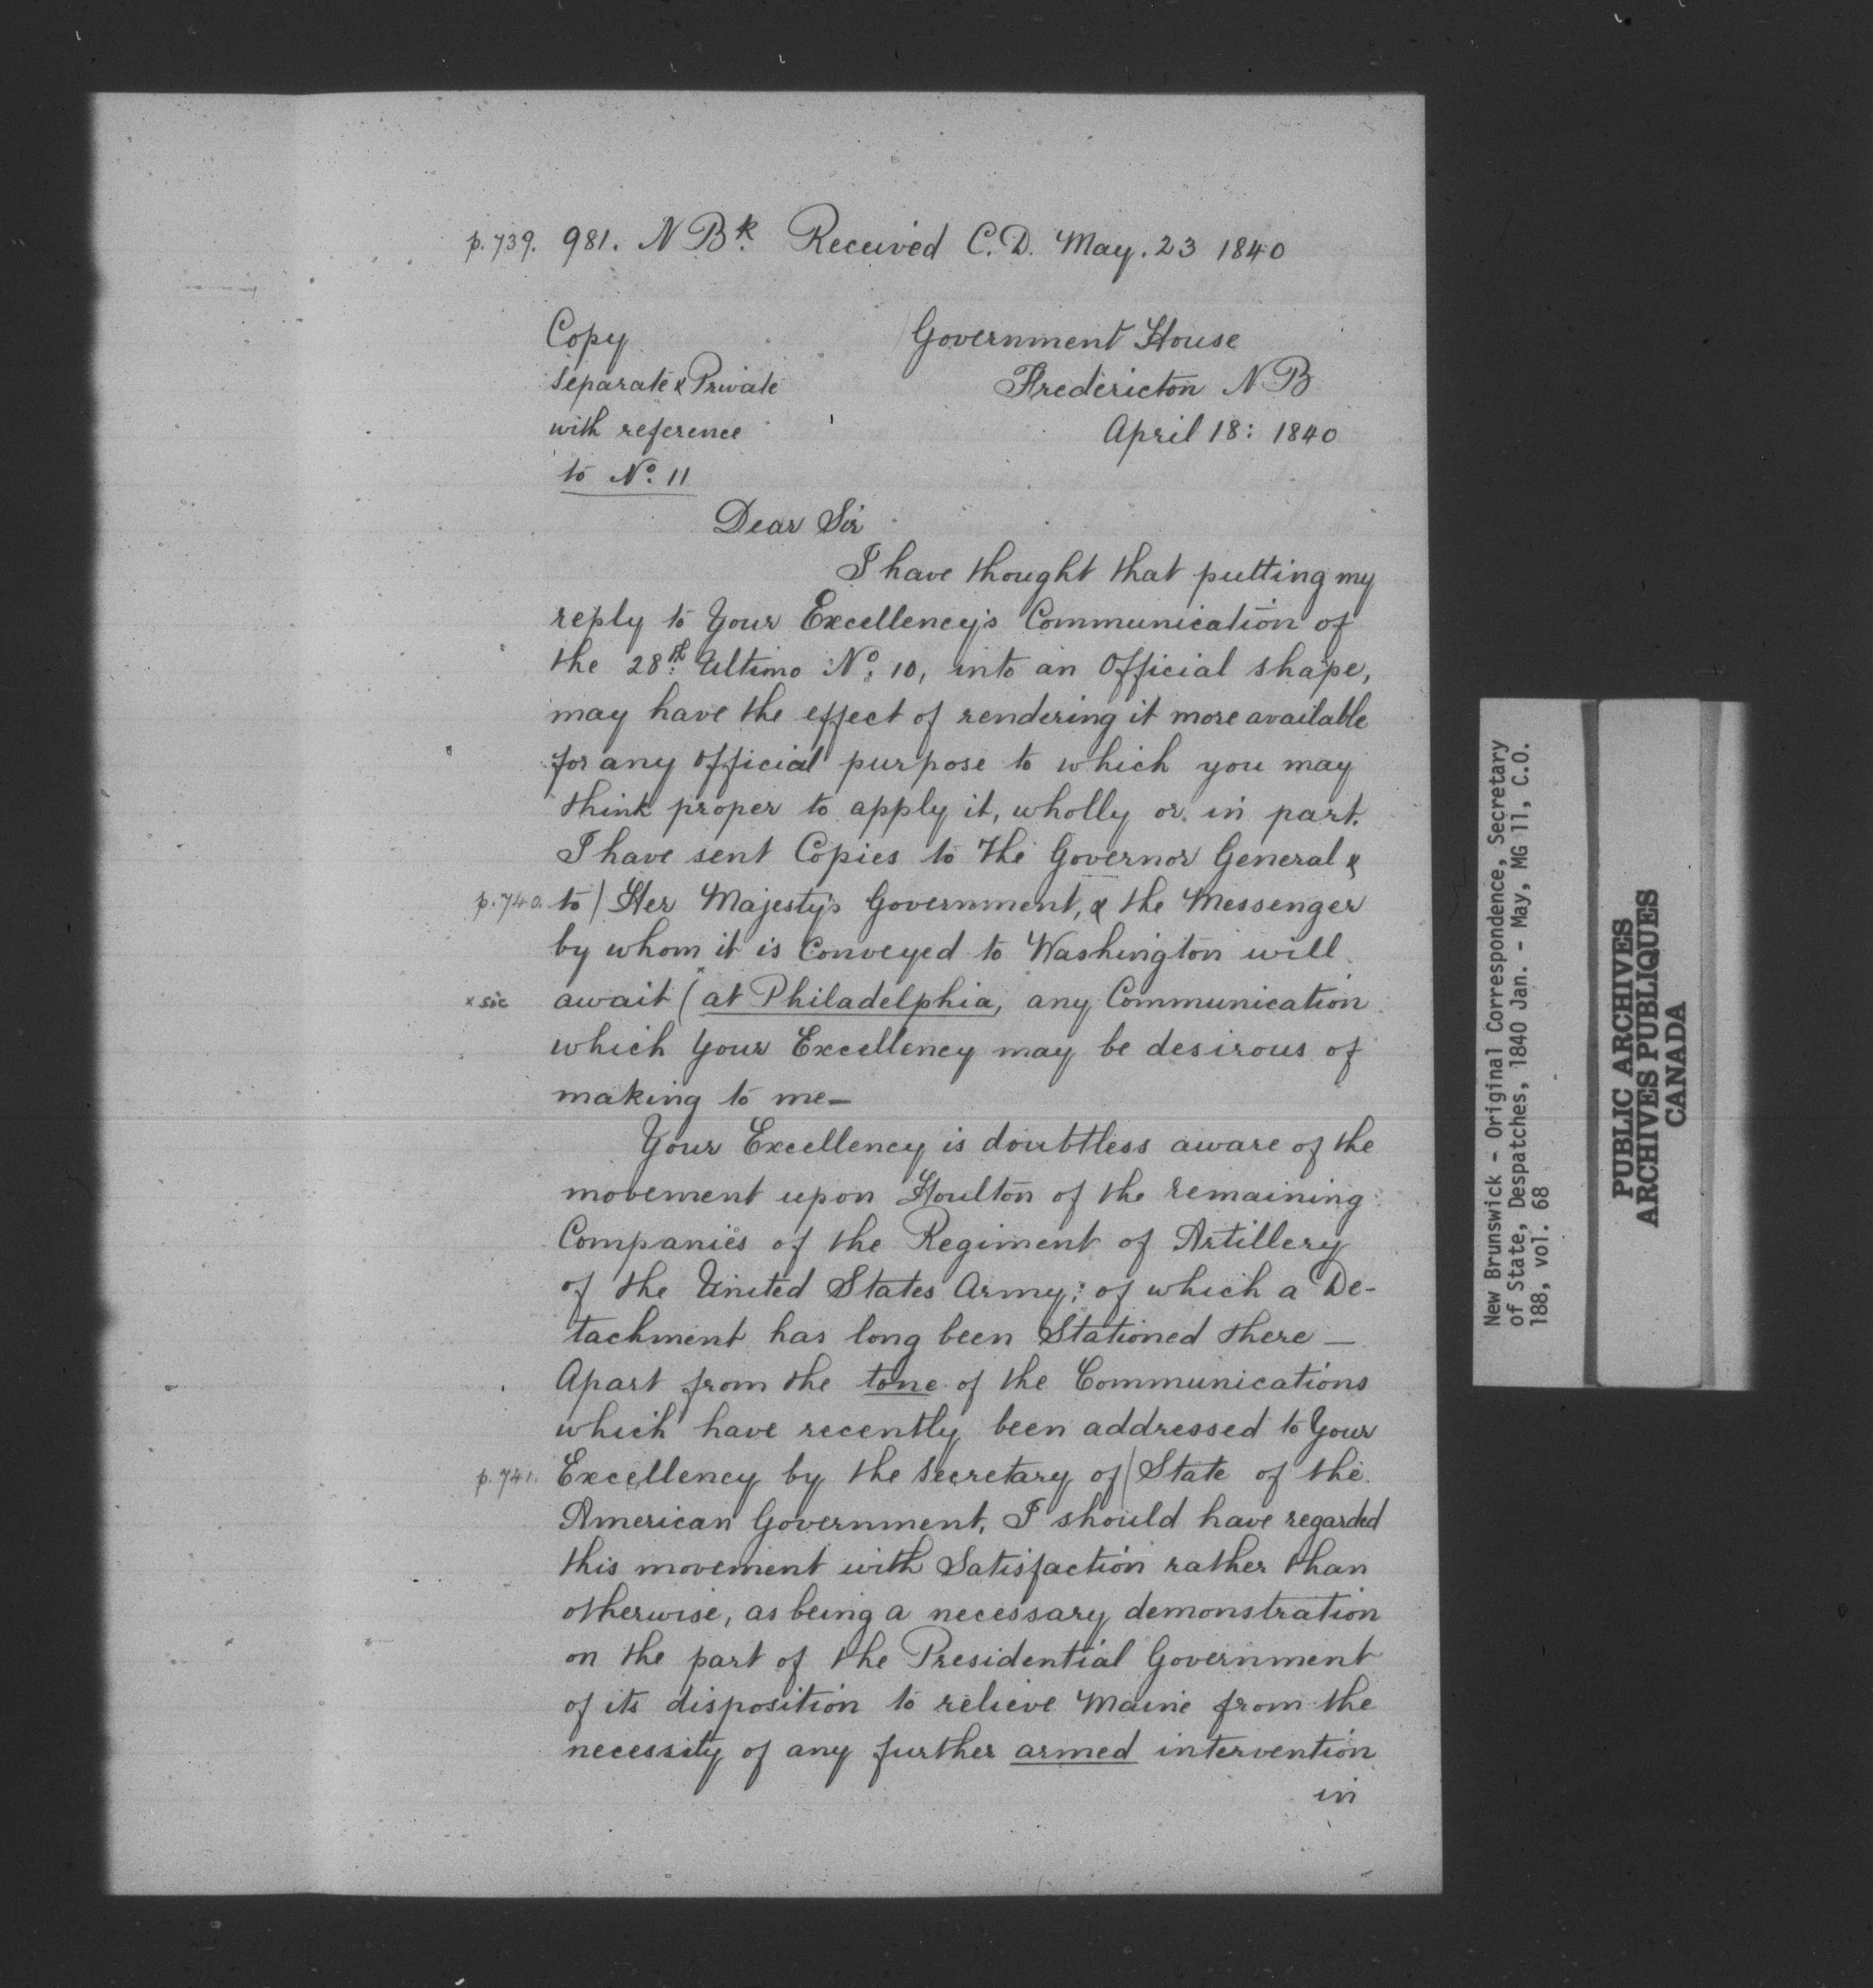 p.739. 981. N Bk. Received C.D. May. 23 1840
Copy
Separate & Private
with reference
to No. 11
Government House
Fredericton N B
April 18: 1840
Dear Sir
I have thought that putting my
reply to Your Excellency's Communication of
the 28th. Ultimo No. 10, into an Official shape,
may have the effect of rendering it more available
for any Official purpose to which you may
think proper to apply it, wholly or in part.
I have sent Copies to The Governor General &
p.740. to / Her Majesty's Government, & the Messenger
by whom it is Conveyed to Washington will
x sic await (x at Philadelphia, any Communication
which Your Excellency may be desirous of
making to me—
Your Excellency is doubtless aware of the
movement upon Houlton of the remaining
Companies of the Regiment of Artillery
of the United States Army; of which a De-
tachment has long been Stationed there —
Apart from the tone of the Communications
which have recently been addressed to Your
p.741. Excellency by the Secretary of / State of the
American Government, I should have regarded
this movement with Satisfaction rather than
otherwise, as being a necessary demonstration
on the part of the Presidential Government
of its disposition to relieve Maine from the
necessity of any further armed intervention
in
New Brunswick - Original Correspondence, Secretary
of State, Despatches, 1840 Jan. - May, MG 11, C.O.
188, vol. 68
PUBLIC ARCHIVES
ARCHIVES PUBLIQUES
CANADA